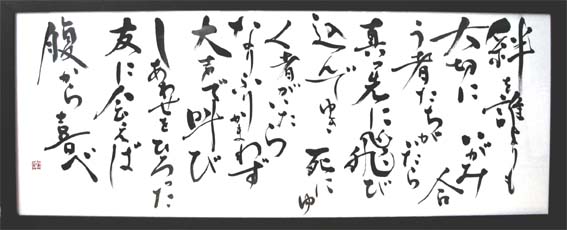 絆を誰よりも
大切に いがみ合
う者たちがいたら
真っ先に飛び
込んでゆき 死にゆ
く者がいたら
なりふりかまわず
大声で叫び
しあわせをひろった
友に会えば
腹から喜べ